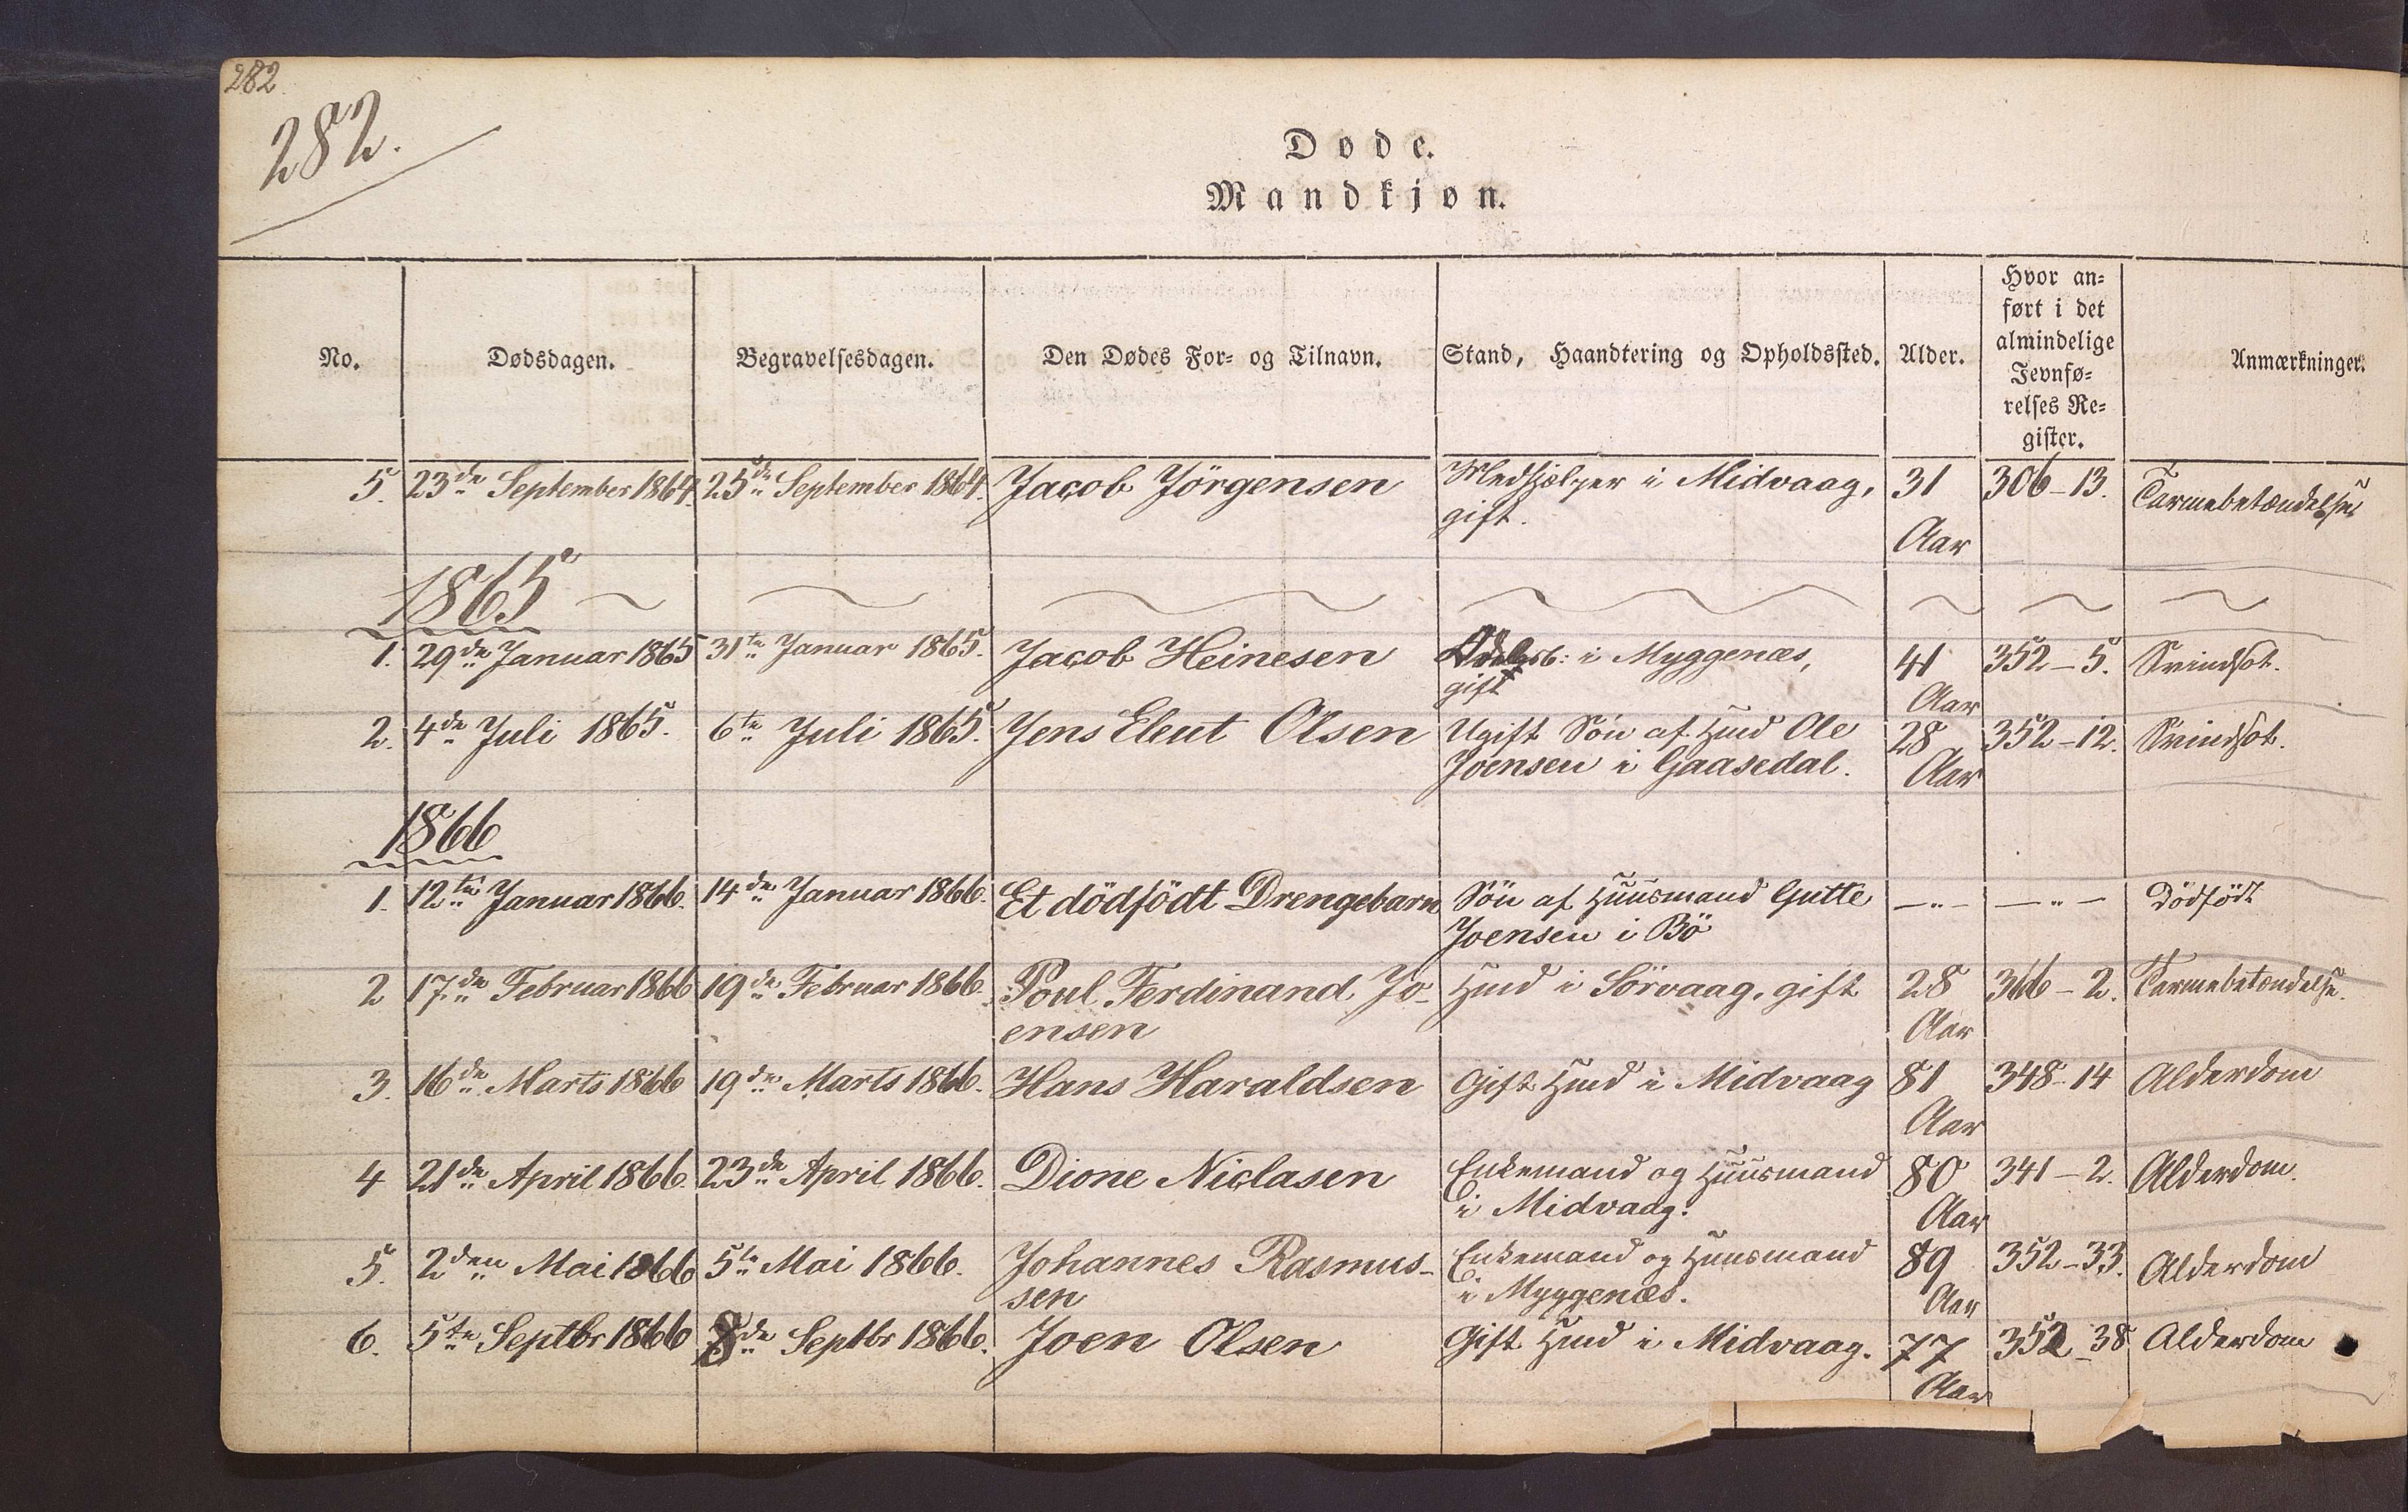 282
282.
Døde.
Mandkjøn.
No. Dødsdagen. Begravelsesdagen. Den Dødes For- og Tilnavn. Stand, Haandtering og Opholdssted. Alder. Hvor an-
ført i det
almindelige
Jevnfø-
relses Re-
gister. Anmærkninger.
5. 23de September 1864. 25de September 1864. Jacob Jörgensen Medhjelper i Midvaag, 31 306-13. Tarmebetændelse
gift. Aar
1865
1. 29de Januar 1865 31te Januar 1865. Jacob Heinesen i Myggenæs, 41 352-5. Svindsot.
gift Aar
2. 4de Juli 1865. 6te Juli 1865. Jens Elent Olsen Ugift Sön af Hmd Ole 28 352-12. Svindsot.
Joensen i Gaasedal. Aar
1866
1. 12te Januar 1866. 14de Januar 1866. Et dödfödt Drengebarn Sön af Huusmand Gutte -„- -„- Dödfödt
Joensen i Bö
2 17de Februar 1866 19de Februar 1866. Poul Ferdinand Jo- Hmd i Sörvaag, gift 28 366-2. Tarmebetændelse.
ensen Aar
3. 16de Marts 1866 19de Marts 1866. Hans Haraldsen Gift Hmd i Midvaag 81 348-14 Alderdom
Aar
4 21de April 1866. 23de April 1866. Dione Niclasen Enkemand og Huusmand 80 341-2. Alderdom.
i Midvaag. Aar
5. 2den Mai 1866 5te Mai 1866. Johannes Rasmus- Enkemand og Huusmand 89 352-33. Alderdom
sen i Myggenæs. Aar
6. 5te Septbr 1866 8de Septbr 1866. Joen Olsen Gift Hmd i Midvaag. 77 352-38 Alderdom
Aar